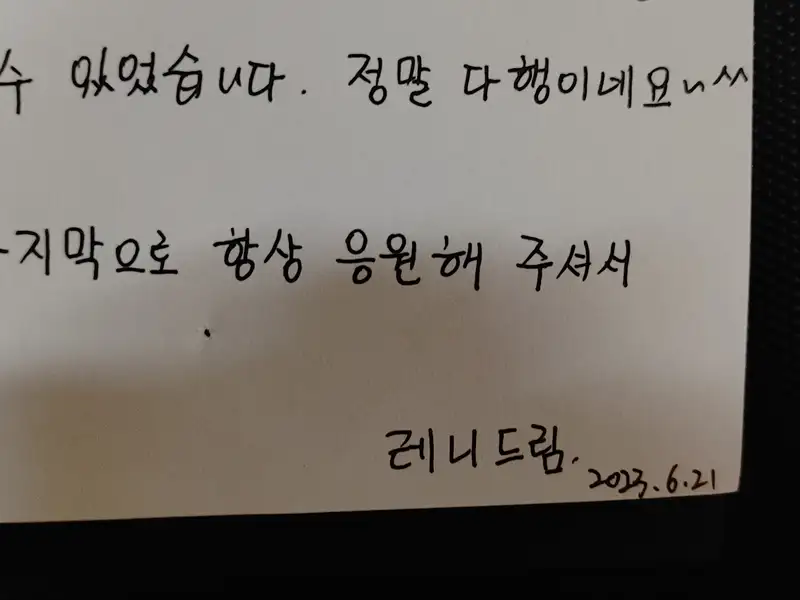 수 있었습니다. 정말 다행이네요~^^
지막으로 항상 응원해 주셔서
.
레니드림.
2023.6.21